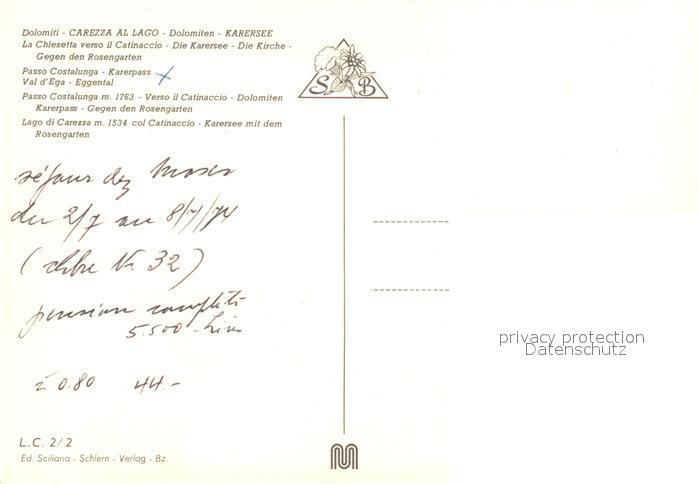 Dolomiti - CAREZZA AL LAGO - Dolomiten - KARERSEE
La Chiesetta verso il Catinaccio - Die Karersee - Die Kirche -
Gegen den Rosengarten
Passo Costalunga - Karerpass
Val d'Ega - Eggental
Passo Costalunga m. 1763 - Verso il Catinaccio - Dolomiten
Karerpass - Gegen den Rosengarten
Lago di Carezza m. 1534 col Catinaccio - Karersee mit dem
Rosengarten
S B
séjour dez Moser
du 2/7 au 8/7/74
(chbre Nr. 32)
pension complète
5.500 - Lires
à 0.80 44.-
privacy protection
Datenschutz
L.C. 2/2
Ed. Sciliaria - Schlern - Verlag - Bz.